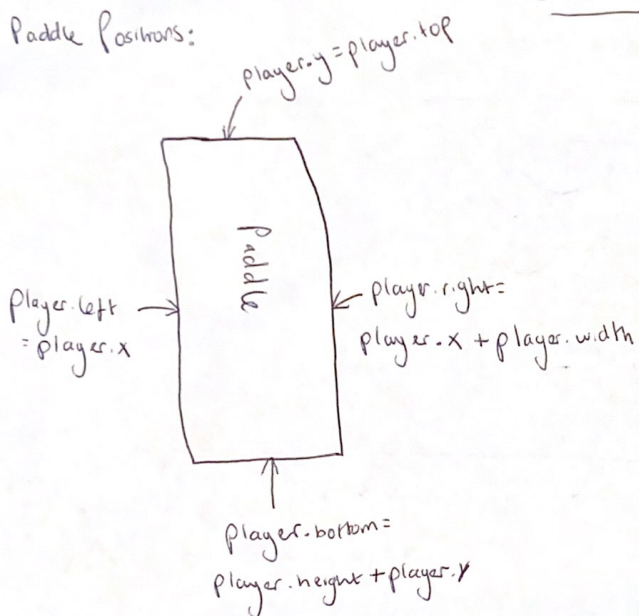 Paddle Positions:
player.y = player.top
Paddle
player.left
= player.x
player.right =
player.x + player.width
player.bottom =
player.height + player.y